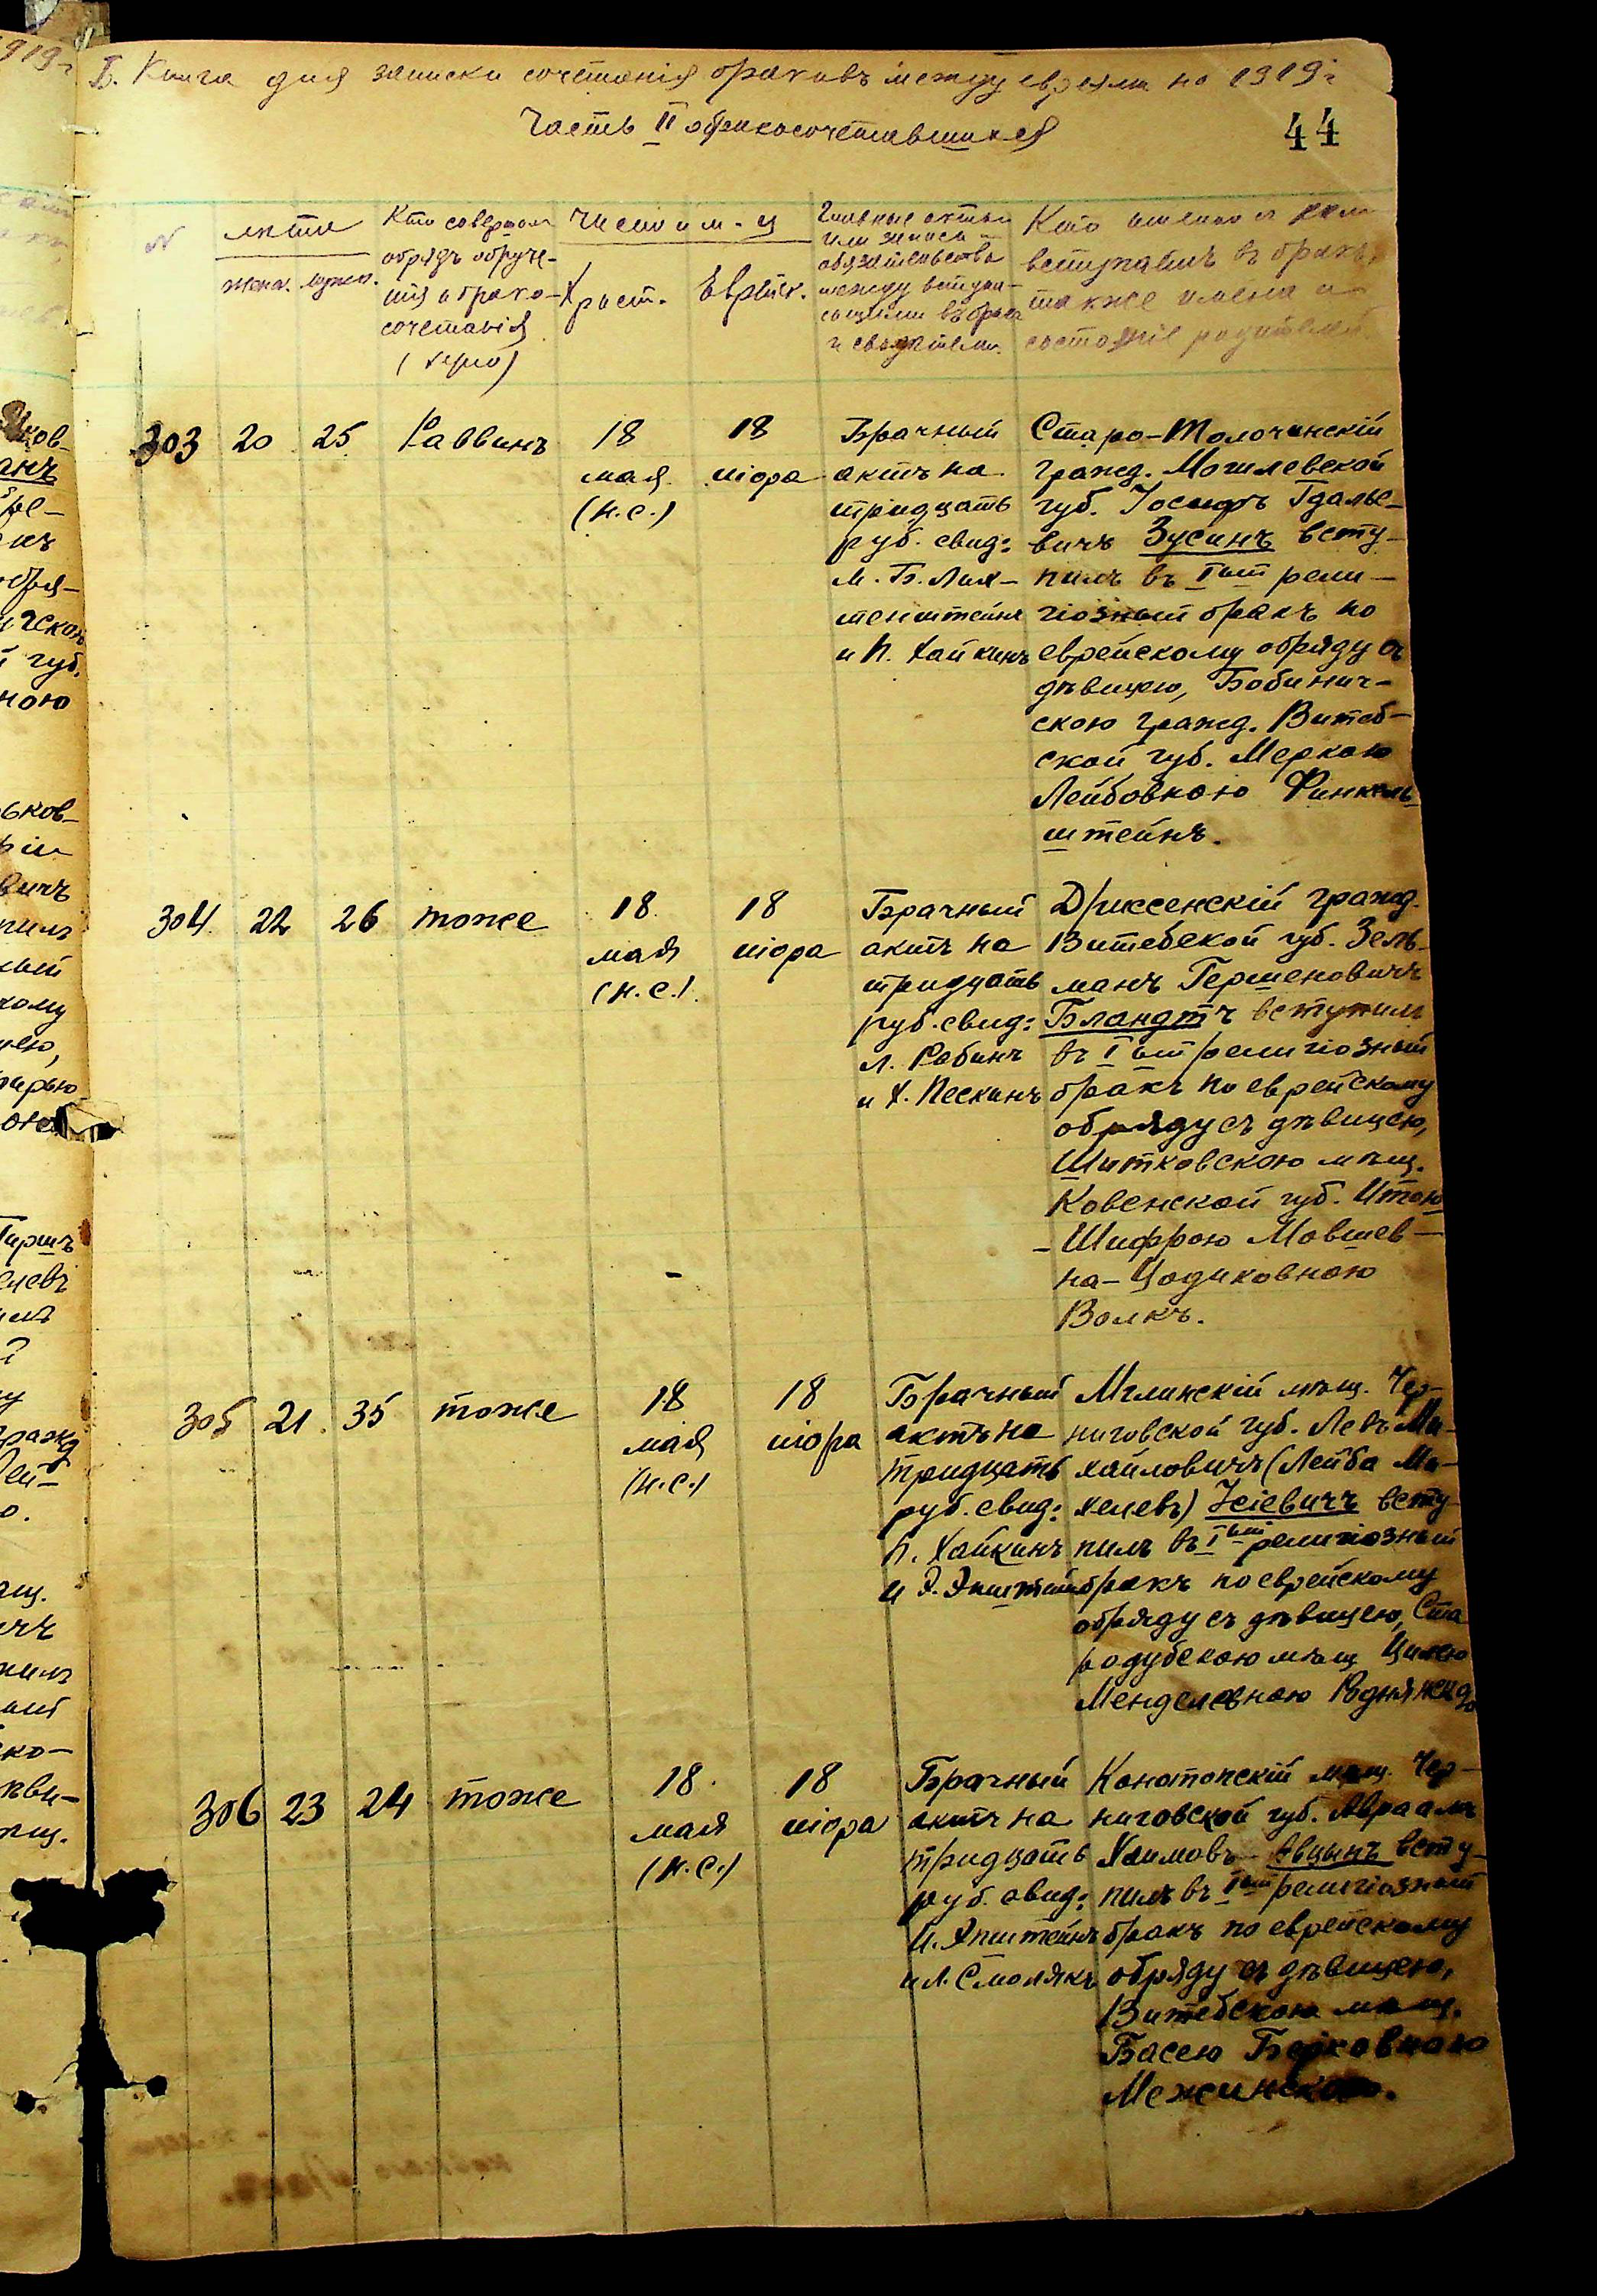 I. Книга для записки сочетанія браковъ между евреями на 1919 г
Часть II о бракосочетавшихся
44
N
лѣта
женск. мужск.
Кто совершал
обрядъ обруче-
нія и брако-
сочетанія
Число и м-ц
Христ.
Еврейск.
Главные акты
или записи
обязательства
между вступа-
ющими въ бракъ
и свидѣтели.
Кто именно с кем
вступаетъ въ бракъ,
также имена и
состояніе родителей.
303 20 25 Раввинъ
18
мая
(н.с.)
18
ніора
Брачный
актъ на
тридцать
руб. свид:
М. Б. Лих-
тенштейнъ
и П. Хайкинъ
Старо-Толочинскій
гражд. Могилевской
губ. Іосифъ Гдалье-
вичъ Зусинъ всту-
пилъ въ Iый рели-
гіозный бракъ по
еврейскому обряду съ
дѣвицею, Бобинич-
скою гражд. Витеб-
ской губ. Меркою
Лейбовною Финкель-
штейнъ.
304 22 26 тоже
18
мая
(н.с.).
18
ніора
Брачный
актъ на
тридцать
руб. свид:
Л. Рабинъ
и Х. Пескинъ
Дриссенскій гражд.
Витебской губ. Зель-
манъ Гершеновичъ
Бландтъ вступилъ
въ Iый религіозный
бракъ по еврейскому
обряду съ дѣвицею,
Шитковскою мѣщ.
Ковенской губ. Итою
-Шифрою Мовшев-
на-Цодиковною
Волкъ.
305 21 35 тоже
18
мая
(н.с.)
18
ніора
Брачный
актъ на
тридцать
руб. свид:
П. Хайкинъ
и Э. Эпштейнъ
Мглинскій мѣщ. Чер-
ниговской губ. Левъ Ми-
хайловичъ (Лейба Ми-
хелевъ) Іесіевичъ всту-
пилъ въ Iый религіозный
бракъ по еврейскому
обряду съ дѣвицею, Ста
родубскою мѣщ Цилею
Менделевною
306 23 24 тоже
18
мая
(н.с.)
18
ніора
Брачный
актъ на
тридцать
руб. свид:
И. Эпштейнъ
и Л. Смолякъ
Конотопскій мѣщ. Чер-
ниговской губ. Авраамъ
Хаимовъ Авцынъ всту-
пилъ въ Iый религіозный
бракъ по еврейскому
обряду съ дѣвицею,
Витебскою мѣщ.
Басею Берковною
Межинскою.